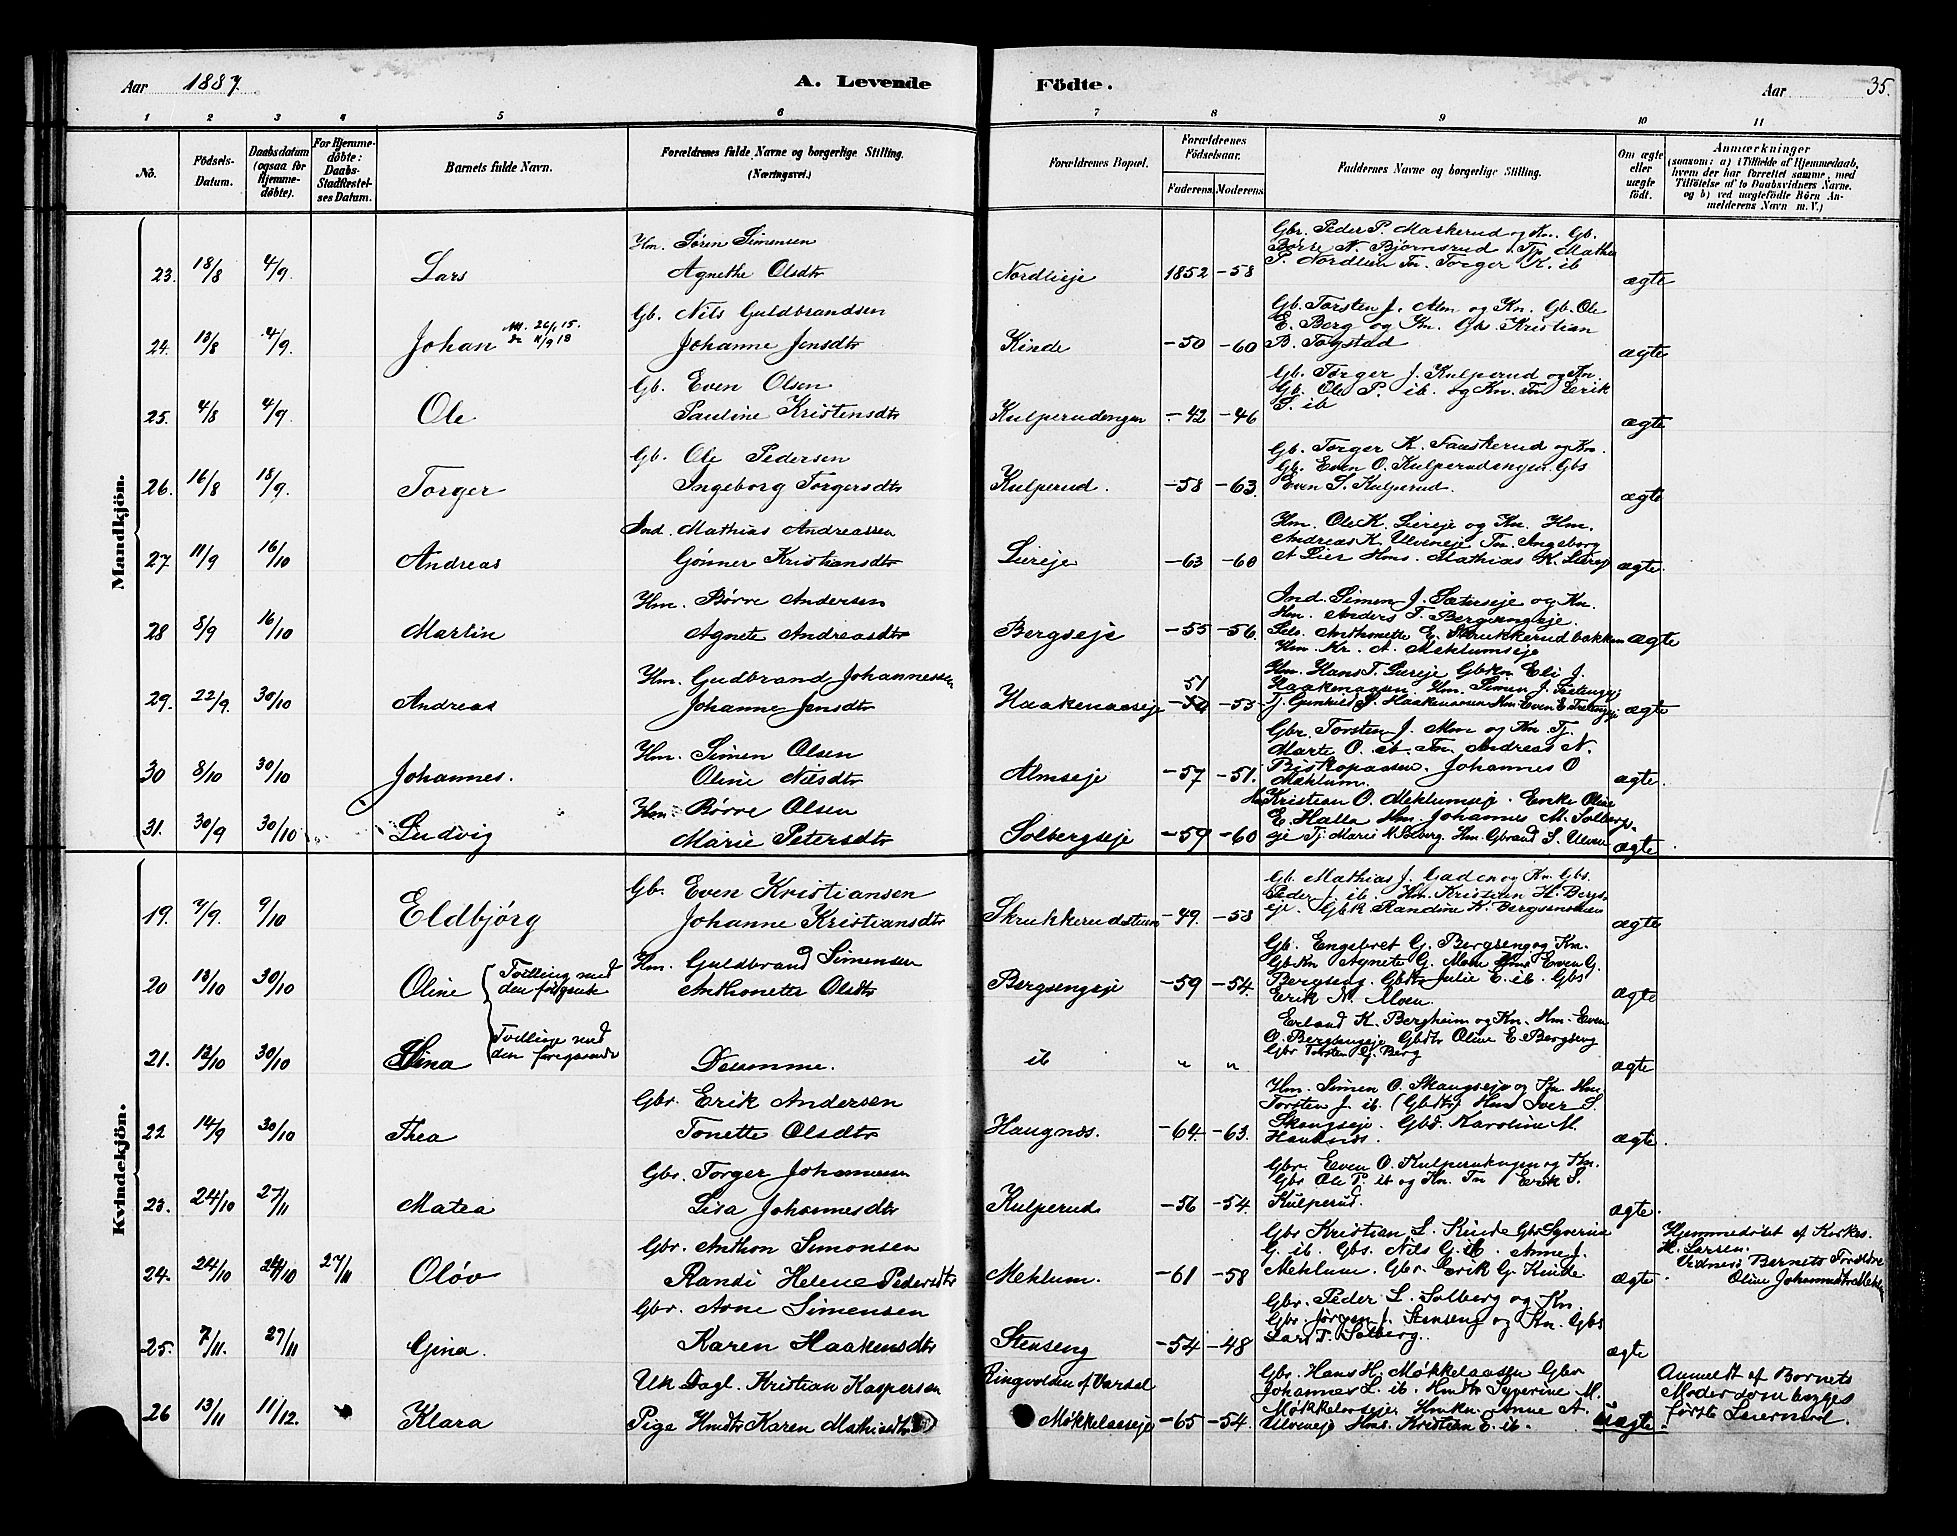 Aar 1887.
A. Levende
Födte.
Aar
35.
1 2 3 4 5 6 7 8 9 10 11
No.
Födsels-
Datum.
Daabsdatum
(ogsaa for
Hjemme-
døbte).
For Hjemme-
døbte:
Daabs-
Stadfæstel-
ses Datum.
Barnets fulde Navn.
Forældrenes fulde Navne og borgerlige Stilling.
(Næringsvei.)
Forældrenes Bopæl.
Forældrenes
Födselsaar.
Faderens. Moderens.
Faddernes Navne og borgerlige Stilling.
Om ægte
eller
uægte
født.
Anmærkninger
(saasom: a) i Tilfælde af Hjemmedaab,
hvem der har forrettet samme, med
Tilføielse af to Daabsvidners Navne,
og b) ved uægtefødte Børn An-
melderens Navn m. V.)
Mandkjön.
23. 18/8 4/9. Lars
Hm. Søren Simensen
Agnethe Olsdtr
Nordlieje 1852 -58
Gbr. Peder P. Maskerud og Kn. Gb.
Børse N. Bjørnsrud. Tp. Mathea
P. Nordlien Tn. Torger K. ib
ægte
24. 13/8 4/9. Johan
Gb. Nils Guldbrandsen
Johanne Jensdtr
Kinde -50 -60
Gb. Torsten J. Alm og Kn. Gb. Ole
E. Berg og Kn. Gb. Kristian
B. Fogstad
ægte
25. 4/8 4/9. Ole
Gb. Even Olsen
Pauline Kristensdtr
Kulperudengen -42 -46
Gb. Torger J. Kulperud og Kn
Gb. Ole P. ib. og Kn. Tn Eerik
S. ib
ægte
26. 16/8 18/9. Torger
Gb. Ole Pedersen
Ingeborg Torgersdtr
Kulperud. -58 -63.
Gb. Torger K. Fauskerud og Kn.
Gb. Even O. Kulperudengen Gbs
Even S. Kulperud.
ægte
27. 11/9 16/10 Andreas
Ind. Mathias Andreassen
Gønner Kristiansdtr
Liereje -63 -60
Hm. Ole K. Liereje og Kn. Hm.
Andreas K. Ulveneje Tn. Ingeborg
A Lier Hms. Mathias K. Liereje
ægte.
28 8/9 16/10 Martin
Hm. Børre Andersen
Agnete Andreasdtr
Bergseje -55 -56.
Ind. Simen J. Sæterseje og Kn.
Hm. Anders T. Bergsengeje.
Sels. Anthonette E. Skrukkerudbakken
Hm. Kr. A. Meklumseje
ægte
29. 22/9. 30/10 Andreas
Hm. Gudbrand Johannessen
Johanne Jensdtr
Haakenaaseje 51 -53
Hm. Hans T. Liereje Gbkn Eli J.
Haakenaasen. Hm. Simen J.
ægte
30 8/10 30/10 Johannes.
Hm. Simen Olsen
Oline Nilsdtr
Almseje -57 -51.
Gbr. Torsten J. Alm og Kn Tj.
Marte O. ib. Tn. Andreas N.
Biskopaasen. Johannes O
Meklum.
ægte.
31. 30/9 30/10 Ludvig
Hm. Børre Olsen
Marie Petersdtr
Solbergseje -59 -60
Kristian O. Meklumseje. Enke Oline
E. Halla Hm. Johannes M. Solberg-
eje Tj. Maris M Solberg. Hm. Gbrand S. Ulven
ægte
Kvindekjön.
19. 7/9. 9/10 Eldbjörg
Gb. Even Kristiansen
Johanne Kristiansdtr
Skrukkerudstuen -49. -53
Gb. Mathias J. Laden og Kn. Gbs.
Peder J. ib. Hm. Kristian H. Bergs-
eje. Gbk Randine K. Bergsenstuen
ægte
20 13/10 30/10 Oline Tvilling med
den følgende
Hm. Guldbrand Simensen
Anthonette Olsdtr
Bergsengeje -59 -54.
Gb. Engebret G. Bergseng og Kn.
GbKn Agnete G. Moen Hms Even G.
Bergseng. Gbdtr Julie E. ib. Gbs
Erik N. Moen.
ægte
21. 13/10 30/10 Stina Tvilling med
den foregaaende
Desamme.
ib " "
Erland K. Bergheim og Kn. Hm. Even
O. Bergsengeje Gbdtr Oline E. Bergseng
Gbr Torsten G. Berg
ægte
22 14/9 30/10 Thea
Gbr. Erik Andersen
Tonette Olsdtr
Haugnæs. -64. -63.
Hm. Simen O. Skaugseje og Kn. Hm.
Torsten J. ib. (Gbdtr) Hms Iver S.
Skougseje. Gbd. Karoline M.
Haugnæs.
ægte
23. 24/10 27/11 Matea
Gbr. Torger Johannesen
Lisa Johannesdtr
Kulperud -56 -54.
Gbr. Even O. Kulperudengen og Kn.
Gbs Ole P. ib og Kn. Tn Erik S.
Kulperud.
ægte.
24. 24/10 24/10 27/11 Olöv
Gbr. Anthon Simonsen
Randi Helene Pedersdtr
Meklum. -61 -58
Gbr Kristian L. Kinde Gbr Syverine
G. ib. Gbs. Nils G. ib. Anne J.
Meklum. Gbr. Eerik G. Kinde
ægte
Hjemmedøbt af Kirkes.
H. Larsen.
Vidner: Barnets Forældre
Oline Johannesdtr Meklum
25. 7/11. 27/11 Gina.
Gbr. Arne Simensen
Karen Haakensdtr
Stenseng -54 -48
Gbr. Peder L. Solberg og Kn.
Gbr. Jørgen J. Stenseng og Kn. Gbs
Lars T. Solberg.
ægte
26 13/11 11/12. Klara
Uk Dagl. Kristian Kaspersen
Pige Hmdtr Karen Mathisdtr
Ringvolden af Vardal
Møkkelaaseje -65 -54.
Gbr. Hans H. Møkkelaasen Gbr
Johannes L. ib. Hmdtr Syverine M.
Møkkelaaseje. Hmkn. Anne A.
Ulveneje Hms. Kristian E. ib.
Uægte.
Anmeldt af Barnets
Moder som begges
første Leiermaal.